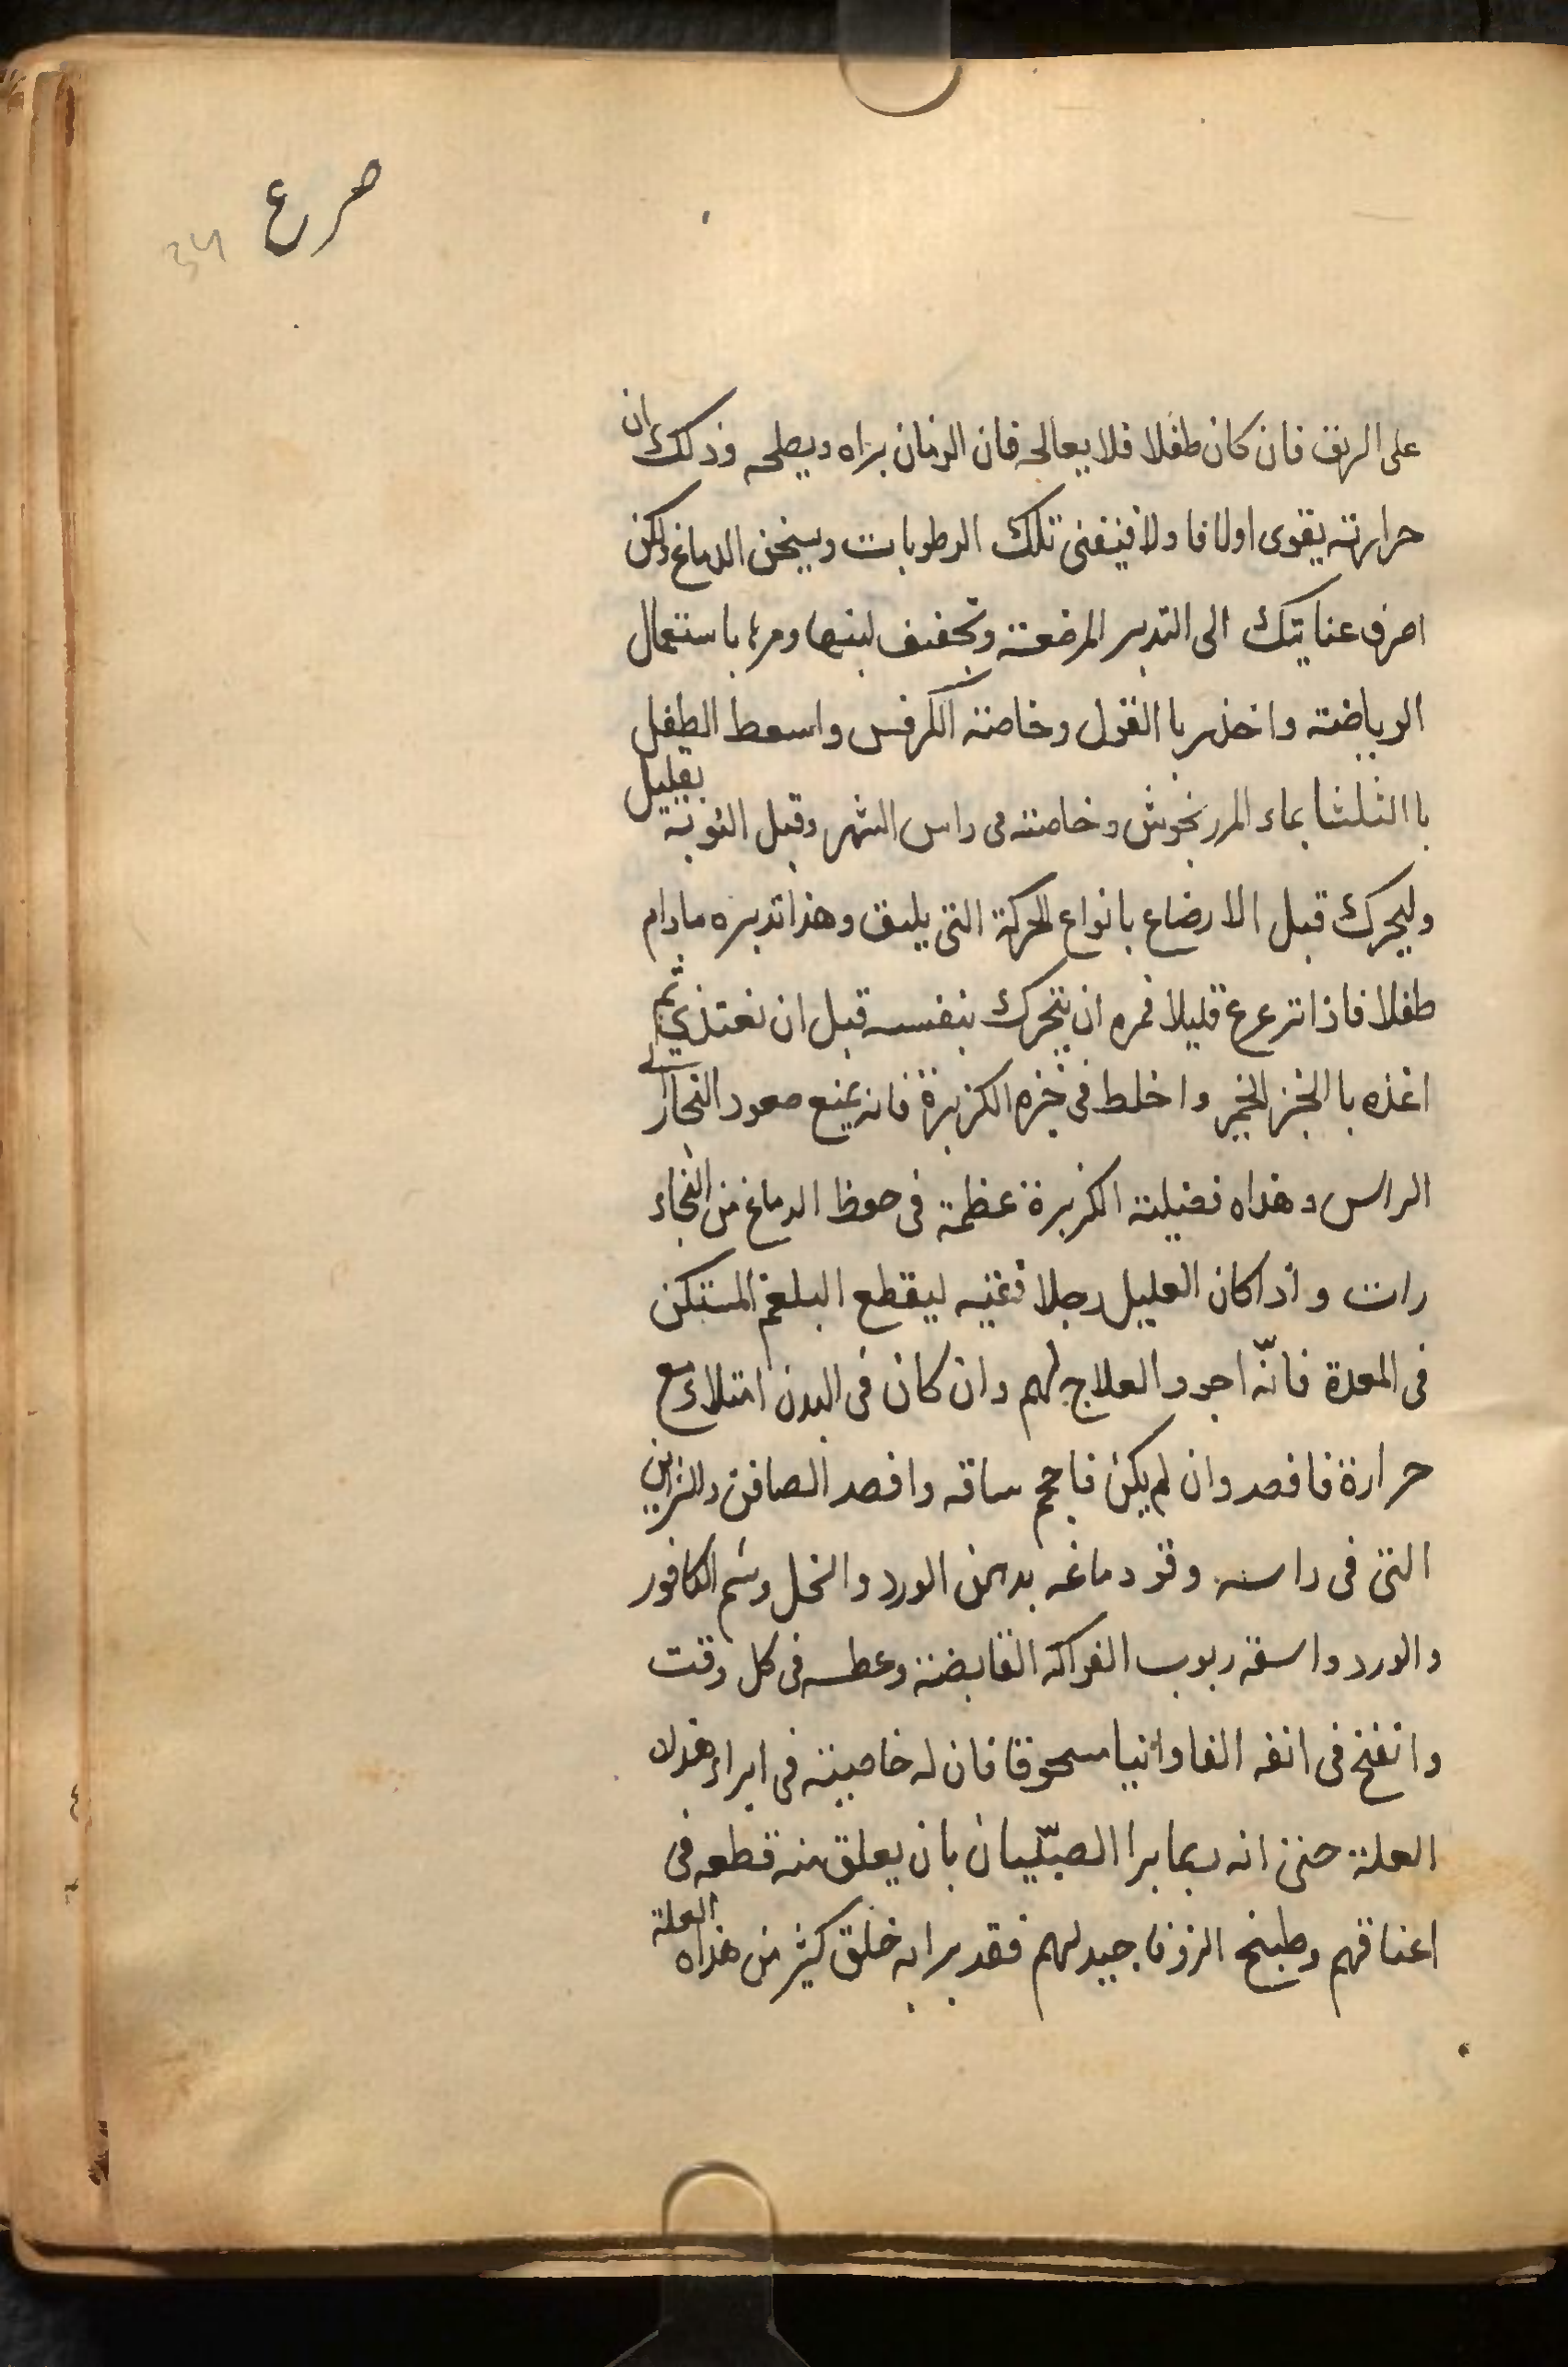 صرع
34
على الريق فان كان طفلا فلا يعالجه فان الزمان يراه ويصلحه وذلك ان
حرارته يقوى اولا فا ولا فيفنى تلك الرطوبات ويسخن الدماغ ولكن
اصرف عنايتك الى التدبير المرضعة وتجفيف لبنها ومرها باستعمال
الرياضة واحذر با القول وخاصة الكرفس واسعط الطفل
با الثلثا بماء المرزنجوش وخاصته فى راس الشهر وقبل النوبة بقليل
وليحرك قبل الارضاع بانواع الحركة التى يليق وهذا تدبيره مادام
طفلا فاذا ترعرع قليلا فمره ان يتحرك بنفسه قبل ان نغتذي ثم
اغذه با الخبز الخمير واخلط فى خبزه الكزبرة فانه يمنع صعود البخار الى
الراس وهذاه فضيلة الكزبرة عظمة فى حفظ الدماغ من البخاء
رات واذا كان العليل رجلا فقيه ليقطع البلغم المستكن
فى المعدة فانّه اجود العلاج لهم وان كان فى البدن امتلاء مع
حرارة فافصد وان لم يكن فاحجم ساقه وافصد الصافن والشرايين
التى فى راسه وقو دماغه بدهن الورد والخل وشم الكافور
والورد واسقه ربوب الفواكه القابضة وعطسه فى كل وقت
وانفخ فى انفه الفاوانيا مسحوقا فان له خاصية فى ابراء هذه
العلة حتى انه ربما برا الصبّيان بان يعلق منه قطعه فى
اعناقهم وطبيخ الزوفا جيد لهم فقد برا به خلق كثير من هذاه العلة